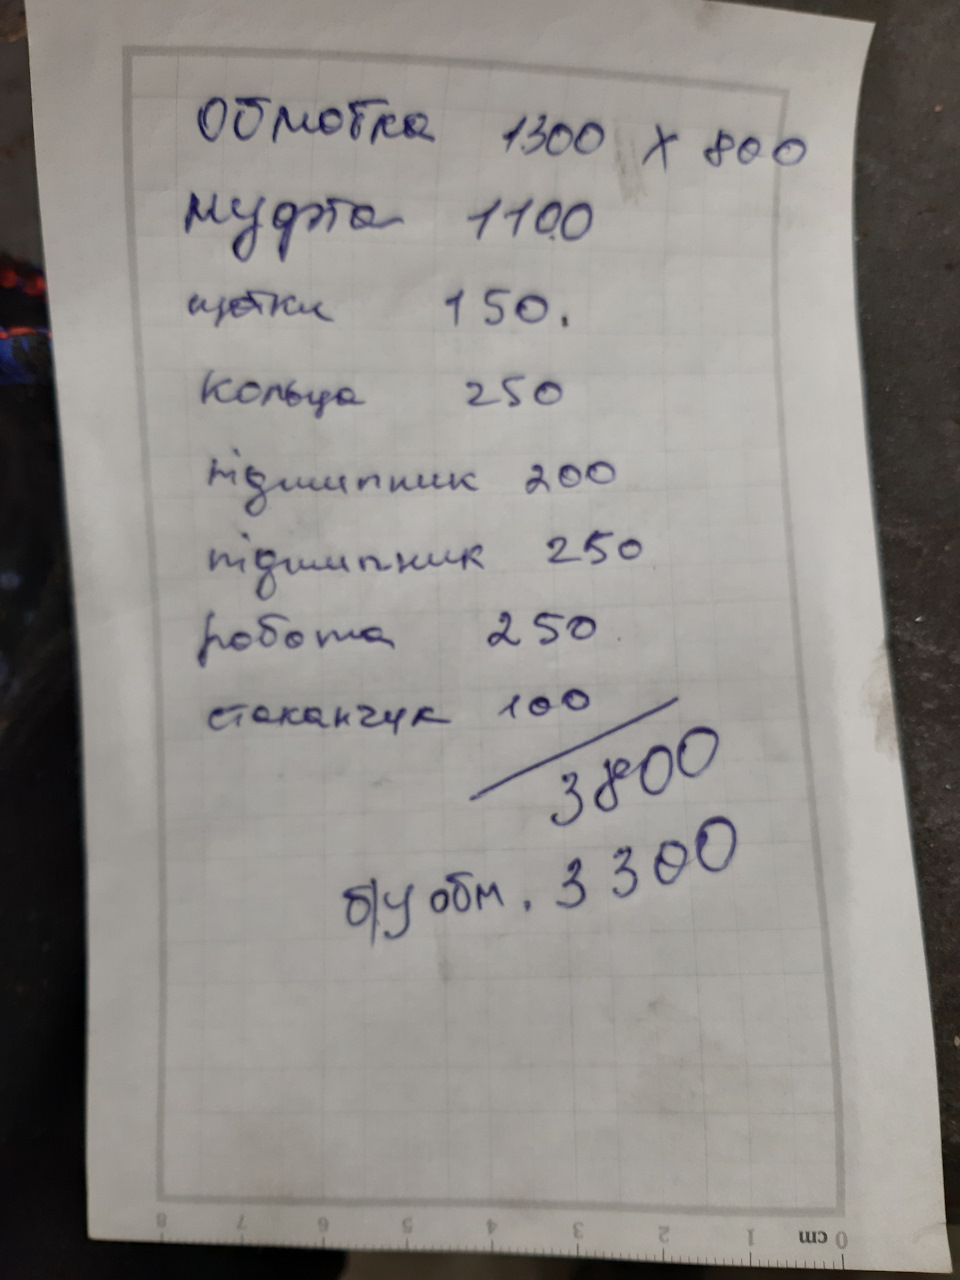 Обмотка 1300 х 800
муфта 1100
щотки 150.
Кольца 250
підшипник 200
підшипник 250
робота 250
стаканчук 100
3800
б/у обм. 3300
0 cm 1 2 3 4 5 6 7 8